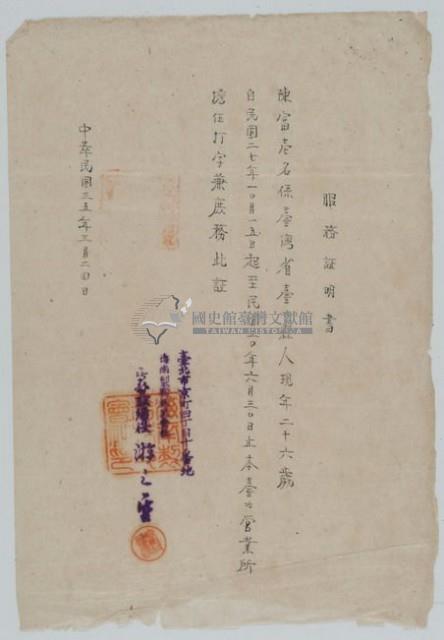 服務証明書
陳富壱名係臺灣省臺北人現年二十六歲
自民國二七年一〇月一五日起至民國三〇年六月三〇日止本臺北営業所
擔任打字兼庶務此証
中華民國三五年三月二〇日
臺北市京町四丁目十番地
游
國史館臺灣文獻館
TAIWAN HISTORICA